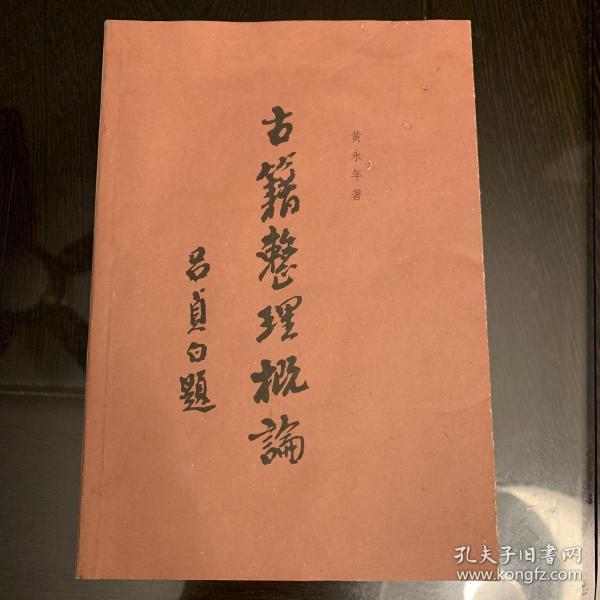 黄永年著
古籍整理概論
吕貞白題
孔夫子旧書网
www.kongfz.com